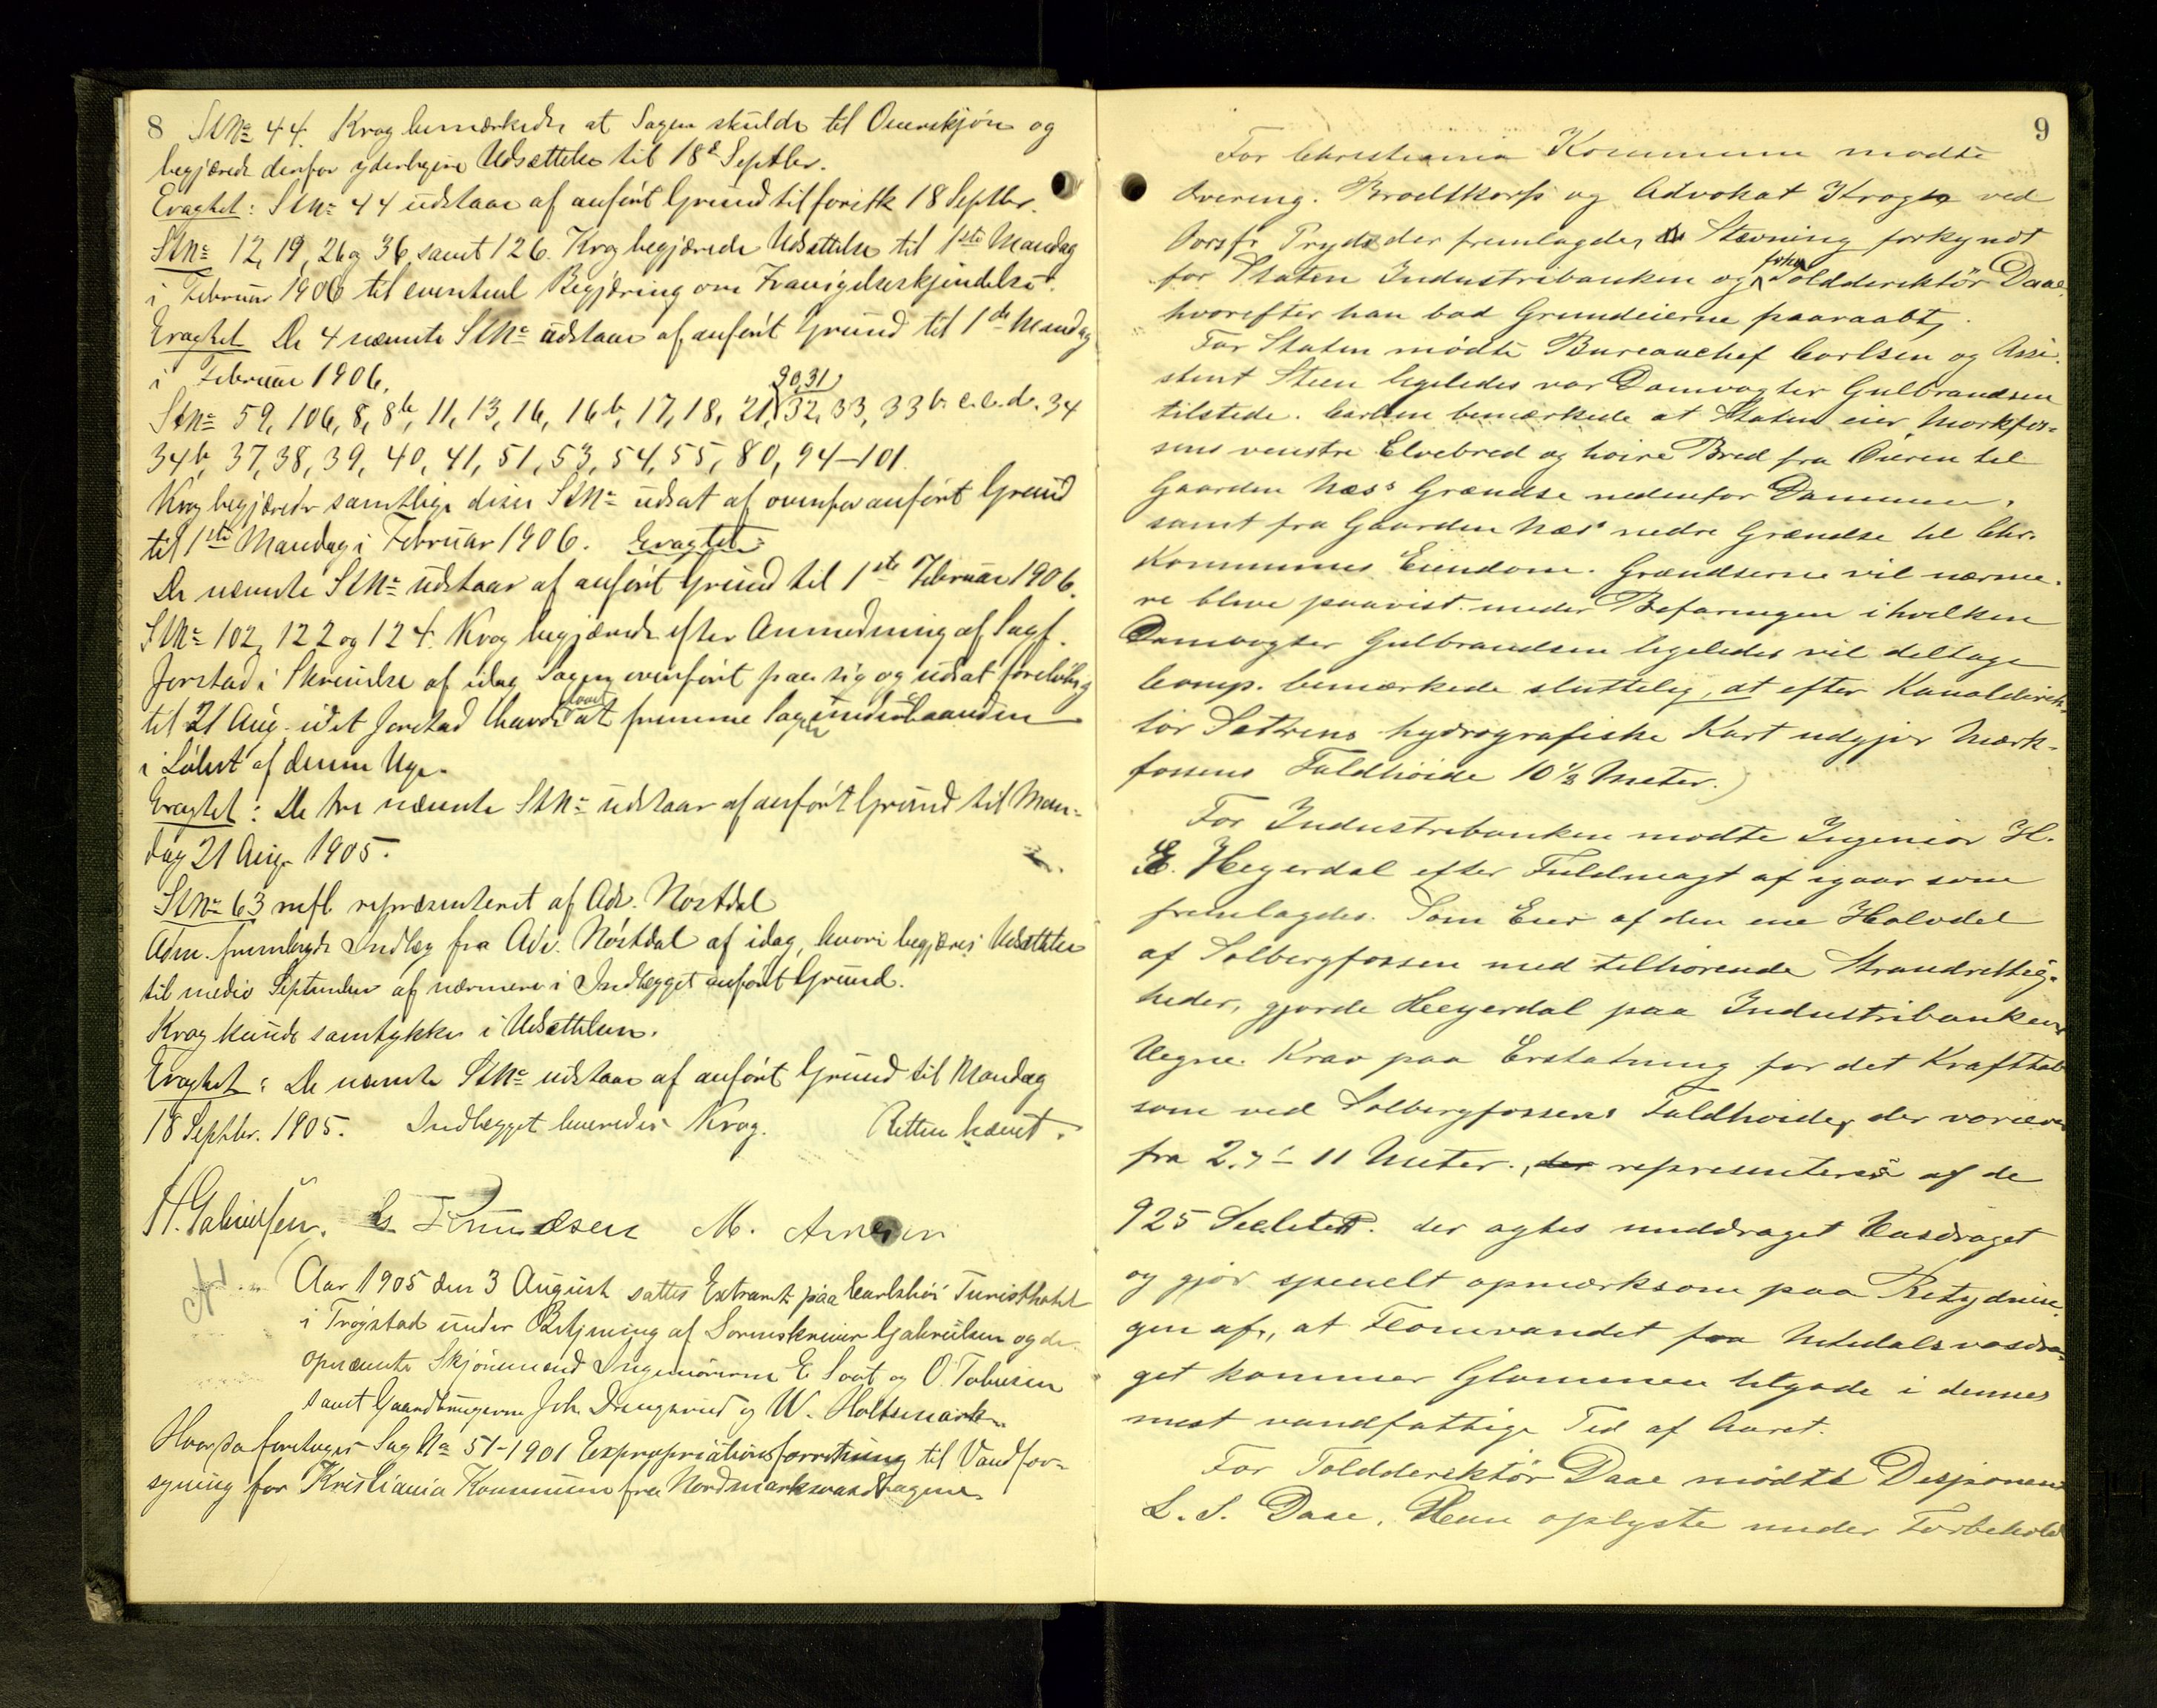 8 StNo 44. Krog bemærkede at Sagen skulde til Overskjøn og
begjærede derfor yderligere Udsættelse til 18de Septbr.
Eragtet: StNo 44 udstaar af anført Grund til 18 Septbr.
StNo 12, 19, 26 og 36 samt 126. Krog begjærede Udsættelse til 1ste Mandag
i Februar 1906 til eventuel Begjæring om Fravigelseskjendelse.
Eragtet De 4 nævnte StNo udstaar af anført Grund til 1ste Mandag
i Februar 1906.
30, 31,
StNo 59, 106, 8, 8b, 11, 13, 16, 16b, 17, 18, 21, 32, 33, 33 b. c. d. 34
34b, 37, 38, 39, 40, 41, 51, 53, 54, 55, 80, 94–101.
Krog begjærede samtlige disse StNo udsat af ovenfor anført Grund
til 1ste Mandag i Februar 1906. Eragtet:
De nævnte StNo udstaar af anført Grund til 1ste Februar 1906.
StNo 102, 122 og 124. Krog begjærede efter Anmodning af Sagf.
Jorstad i Skrivelse af idag Sagen overført paa sig og udsat foreløbig
til 21 Aug. idet Jorstad havde lovet at fremme Sagen underhaanden
i Løbet af denne Uge.
Eragtet: De tre nævnte StNo udstaar af anført Grund til Man-
dag 21 Aug. 1905.
StNo 63 repræsenteret af Adv. Nøstdal
Adm. fremlagde Indlæg fra Adv. Nøstdal af idag, hvori begjæres Udsættelse
til medio September af nærmere i Indlægget anført Grund.
Krog kunde samtykke i Udsættelsen.
Eragtet: De nævnte StNo udstaar af anført Grund til Mandag
18 Septbr. 1905. Indlægget leveredes Krog. Retten hævet.
H. Gabrielsen. Knudsen M. Arnesen
Aar 1905 den 3 August sattes Extraret paa Carlshøi Turisthotel
i Trøgstad under Betjening af Sorenskriver Gabrielsen og de
opnævnte Skjønsmænd Ingeniørerne E Soot og O. Tobiesen
samt Gaardbrugerne Joh. Drengsrud og W. Holtsmark.
Hvorpaa foretoges Sag No 51-1901 Expropriationsforretning til Vandfor-
syning for Kristiania Kommune fra Nordmarksvasdragene.
9
For Christiania Kommune mødte
Overing. Brodtkorb og Advokat Krog ved
Ovrsfr Prydz der fremlagde Stevning forkyndt
for Staten Industribanken og Tolddirektør Daae
hvorefter han bad Grundeierne paaraabt.
For Staten mødte Bureauchef Carlsen og Assi-
stent Steen ligeledes var Damvogter Gulbrandsen
tilstede. Carlsen bemærkede at Staten eier Mørkfos-
sens venstre Elvebred og høire Bred fra Øieren til
Gaarden Næs's Grændse nedenfor Dammen,
samt fra Gaarden Næs' nedre Grændse til Chr.
Kommunes Eiendom. Grændserne vil nærme-
re blive paavist under Befaringen i hvilken
Damvogter Gulbrandsen ligeledes vil deltage
Comp. bemærkede sluttelig, at efter Kanaldirek-
tør Sætrens hydrografiske Kart udgjør Mørk-
fossens Faldhøide 10 1/3 Meter.
For Industribanken mødte Ingeniør H.
E. Heyerdal efter Fuldmagt af igaar som
fremlagdes. Som Eier af den ene Halvdel
af Solbergfossen med tilhørende Strandrettig-
heder, gjorde Heyerdal paa Industribankens
Vegne Krav paa Erstatning for det Krafttab
som ved Solbergfossens Faldhøide, der varierer
fra 2.7 – 11 Meter, representeres af de
925 Seclitr. der agtes unddraget Vasdraget
og gjør specielt opmærksom paa Betydnin-
gen af, at Flomvandet fra vasdra-
get kommer Glommen tilgode i dennes
mest vandfattige Tid af Aaret.
For Tolddirektør Daae mødte Disponent
L. S. Daae. Han oplyste under Forbehold